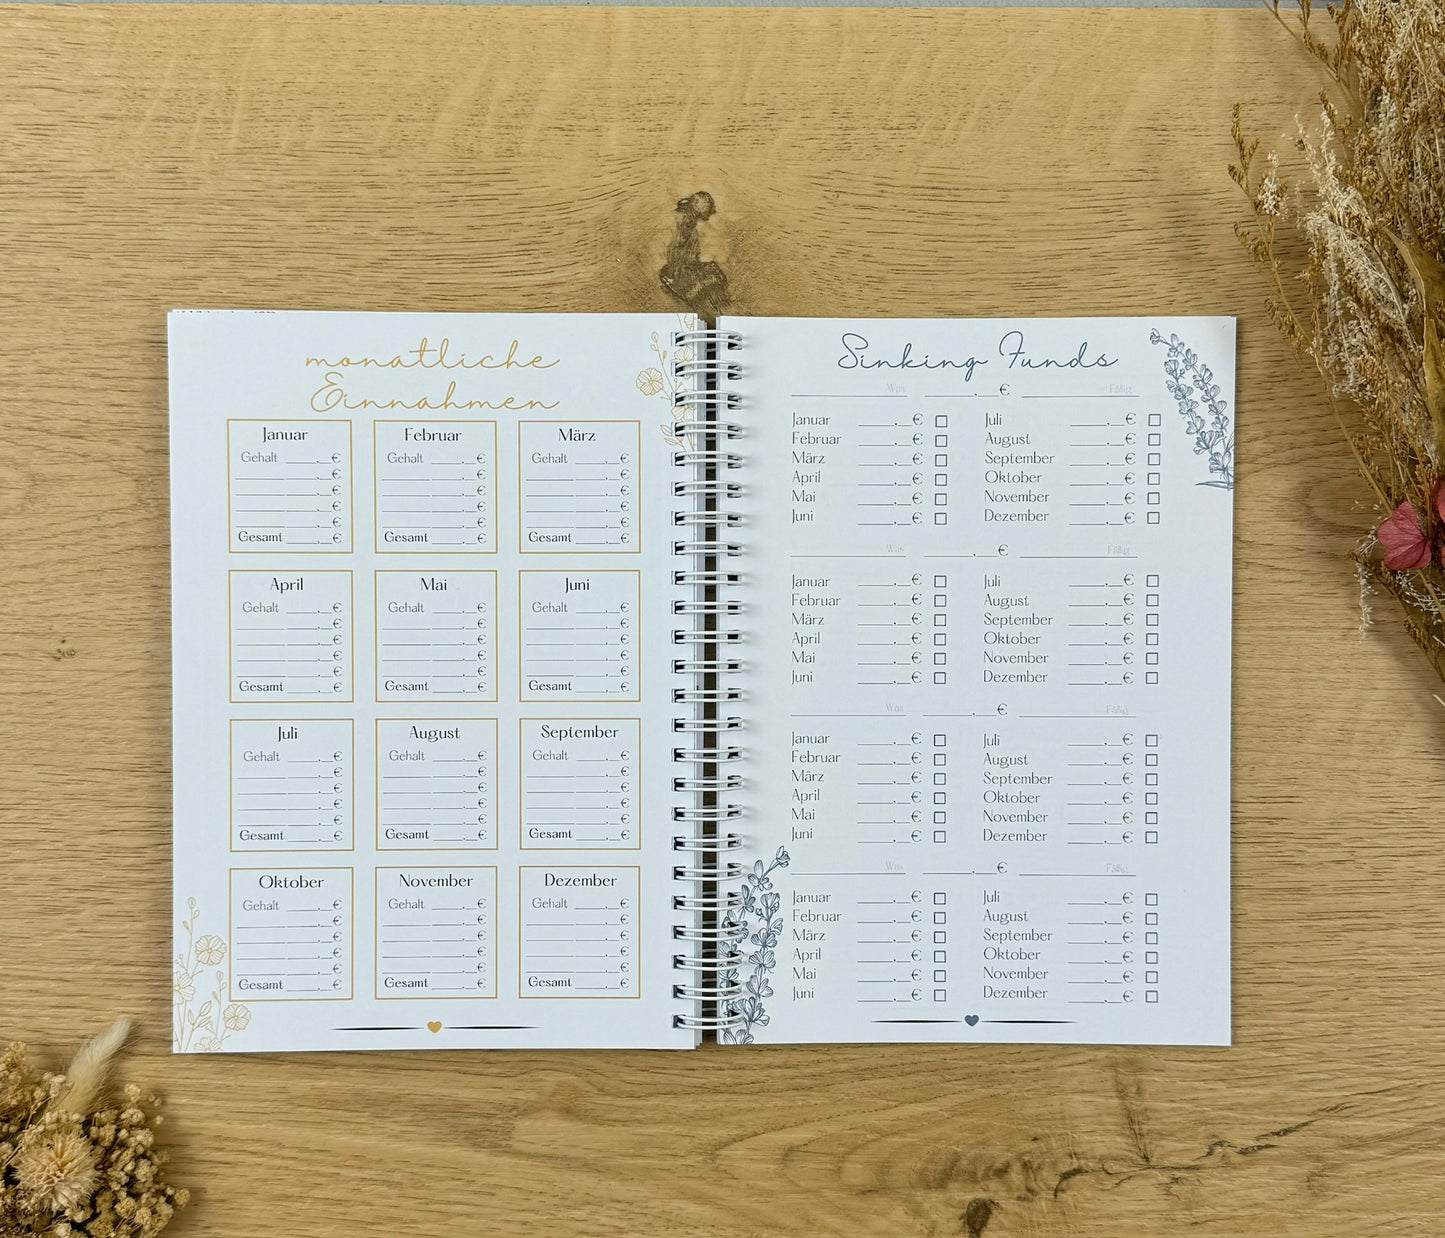 monatliche
Einnahmen
Januar Februar März
Gehalt ____.__€ Gehalt ____.__€ Gehalt ____.__€
____.__€ ____.__€ ____.__€
____.__€ ____.__€ ____.__€
____.__€ ____.__€ ____.__€
____.__€ ____.__€ ____.__€
Gesamt ____.__€ Gesamt ____.__€ Gesamt ____.__€
April Mai Juni
Gehalt ____.__€ Gehalt ____.__€ Gehalt ____.__€
____.__€ ____.__€ ____.__€
____.__€ ____.__€ ____.__€
____.__€ ____.__€ ____.__€
____.__€ ____.__€ ____.__€
Gesamt ____.__€ Gesamt ____.__€ Gesamt ____.__€
Juli August September
Gehalt ____.__€ Gehalt ____.__€ Gehalt ____.__€
____.__€ ____.__€ ____.__€
____.__€ ____.__€ ____.__€
____.__€ ____.__€ ____.__€
____.__€ ____.__€ ____.__€
Gesamt ____.__€ Gesamt ____.__€ Gesamt ____.__€
Oktober November Dezember
Gehalt ____.__€ Gehalt ____.__€ Gehalt ____.__€
____.__€ ____.__€ ____.__€
____.__€ ____.__€ ____.__€
____.__€ ____.__€ ____.__€
____.__€ ____.__€ ____.__€
Gesamt ____.__€ Gesamt ____.__€ Gesamt ____.__€
Sinking Funds
Was ____.__€ Fällig
Januar ____.__€ Juli ____.__€
Februar ____.__€ August ____.__€
März ____.__€ September ____.__€
April ____.__€ Oktober ____.__€
Mai ____.__€ November ____.__€
Juni ____.__€ Dezember ____.__€
Was ____.__€ Fällig
Januar ____.__€ Juli ____.__€
Februar ____.__€ August ____.__€
März ____.__€ September ____.__€
April ____.__€ Oktober ____.__€
Mai ____.__€ November ____.__€
Juni ____.__€ Dezember ____.__€
Was ____.__€ Fällig
Januar ____.__€ Juli ____.__€
Februar ____.__€ August ____.__€
März ____.__€ September ____.__€
April ____.__€ Oktober ____.__€
Mai ____.__€ November ____.__€
Juni ____.__€ Dezember ____.__€
Was ____.__€ Fällig
Januar ____.__€ Juli ____.__€
Februar ____.__€ August ____.__€
März ____.__€ September ____.__€
April ____.__€ Oktober ____.__€
Mai ____.__€ November ____.__€
Juni ____.__€ Dezember ____.__€